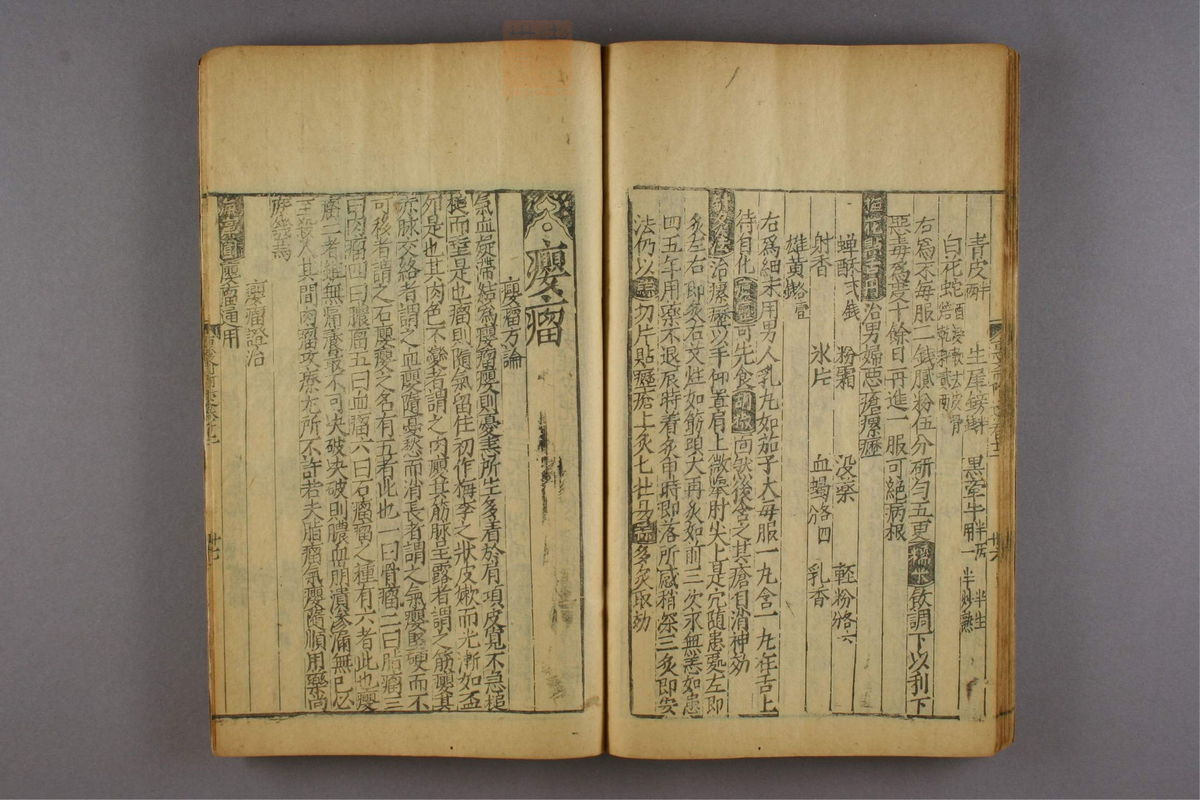 青皮半兩 生犀鎊半錢 黑牽牛一兩半 半生半炒熟
白花蛇
右為末每服二錢膩粉伍分研勻五更糯米飲調下以利下
惡毒為度十餘日再進一服可絕病根
治男婦惡瘡瘰癧
蟬酥 粉霜 没藥 輕粉
射香 氷片 血蝎 乳香
雄黃
右為細末用男人乳丸如茄子大每服一丸含一丸在舌上
待自化可先食回然後含之其瘡自消神効
治瘰癧以手仰置肩上微舉肘尖上是穴随患處左即
灸左右即灸右艾炷如筋頭大再灸如前三次永無恙如患
四五年用藥不退辰時着灸申時即落所感稍深三灸即安
法仍以蒜切片貼癧瘡上灸七壯易蒜多灸取効
癭瘤
癭瘤方論
氣血凝滯結為癭瘤癭則憂恚所生多着於有項皮寬不急搥
搥而垂是也瘤則隨氣留住初作梅李之狀皮嫩而光漸如盃
夘是也其肉色不變者謂之肉癭其筋脉呈露者謂之筋癭其
赤脉交絡者謂之血癭隨憂愁而消長者謂之氣癭堅硬而不
可移者謂之石癭癭之名有五者此也一曰骨瘤二曰脂瘤三
曰肉瘤四曰膿瘤五曰血瘤六曰石瘤瘤之種有六者此也癭
瘤二者雖無痛癢最不可决破决破則膿血崩潰滲漏無已必
至殺人其間肉瘤攻療尤所不許若夫脂瘤氣癭隨順用藥尚
庶幾焉
癭瘤證治
癭瘤通用